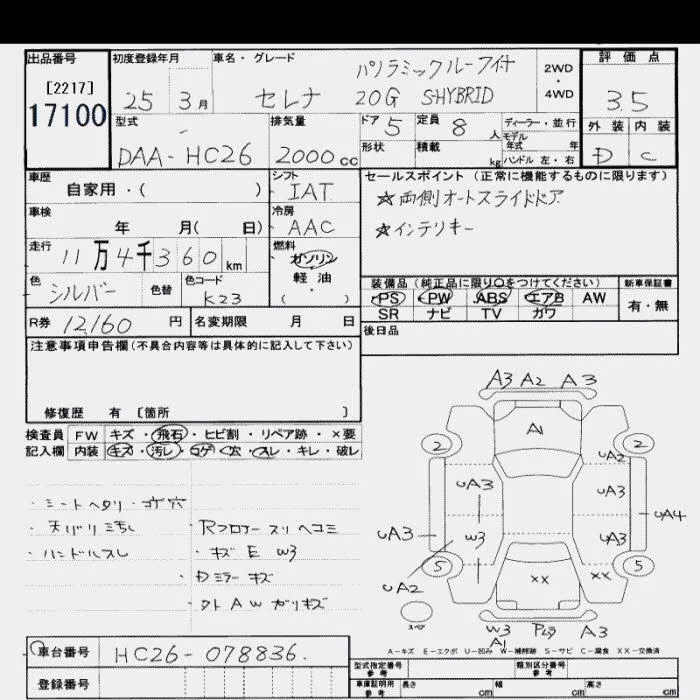 出品番号 初度登録年月 車名・グレード 評価点
[2217] パノラミックルーフ付 2WD
17100 25 3月 セレナ 20G SHYBRID ・4WD 3.5
型式 排気量 ドア 5 定員 8人 ディーラー・並行 外装 内装
DAA-HC26 2000cc 形状 積載 kg モデル年式 年 D C
ハンドル 左・右
車歴 シフト セールスポイント(正常に機能するものに限ります)
自家用・( ) IAT ☆両側オートスライドドア
車検 冷房 ☆インテリキー
年 月( 日) AAC
走行 11万4千360km 燃料 ガソリン
軽油
( ・ )
色 シルバー 色替 色コード K23 装備品(純正品に限り○をつけてください) 新車保証書
PS PW ABS エアB AW 有・無
R券 12,160円 名変期限 月 日 SR ナビ TV カワ
注意事項申告欄(不具合内容等は具体的に記入して下さい) 後日品
修復歴 有 [箇所 ]
検査員 FW キズ・飛石・ヒビ割・リペア跡・×要
記入欄 内装 キズ・汚レ・コゲ・穴・スレ・キレ・破レ
A3 A2 A3
A1
2 2
UA2
UA3 UA3
UA4
UA3 W3 UA3
5 5
XX XX
UA2
スペア
W3 A3
A1
・シートヘタリ・コゲ穴
・天バリ汚れ Rフロアースリヘコミ
・ハンドルスレ ・キズ E W3
・Dミラーキズ
・タトAWガリキズ
A-キズ E-エクボ U-凹み W-補修跡 S-サビ C-腐食 XX-交換済
車台番号 HC26-078836.
登録番号
型式指定番号 参考 類別区分番号 参考
車庫証明用 参考 長さ cm 幅 cm 高さ cm